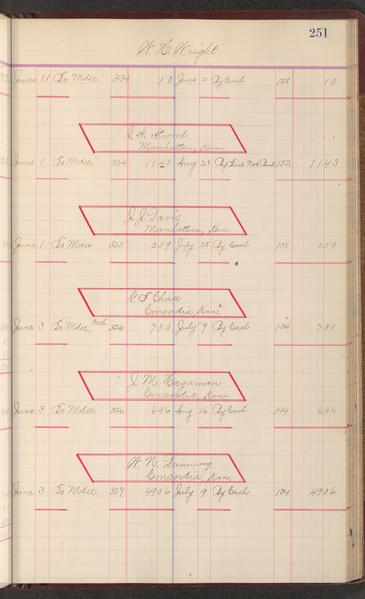 251
W. H. Wright
June 11 To Mdse 334 10 June 2 By Cash 128 10
G. H. Atwood
Manhattan, Kan.
June 1 To Mdse 324 1143 Aug 29 By 152 1143
J. J. Davis
Manhattan, Kan.
June 1 To Mdse 325 259 July 28 By Cash 138 259
G. S. Chase
Concordia, Kan.
June 3 To Mdse 326 780 July 7 By Cash 134 780
J. M. Hagaman
Concordia, Kan.
June 3 To Mdse 326 646 Aug 16 By Cash 144 646
W. N. Dunning
Concordia Kan
June 3 To Mdse 327 4906 July 9 By Cash 134 4906